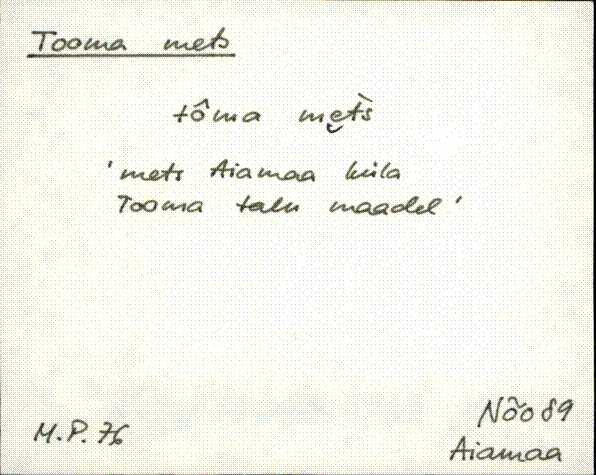 Tooma mets
tôma me̮t̀s
'mets Aiamaa küla
Tooma talu maadel'
M.P. 76
Nõo 89
Aiamaa